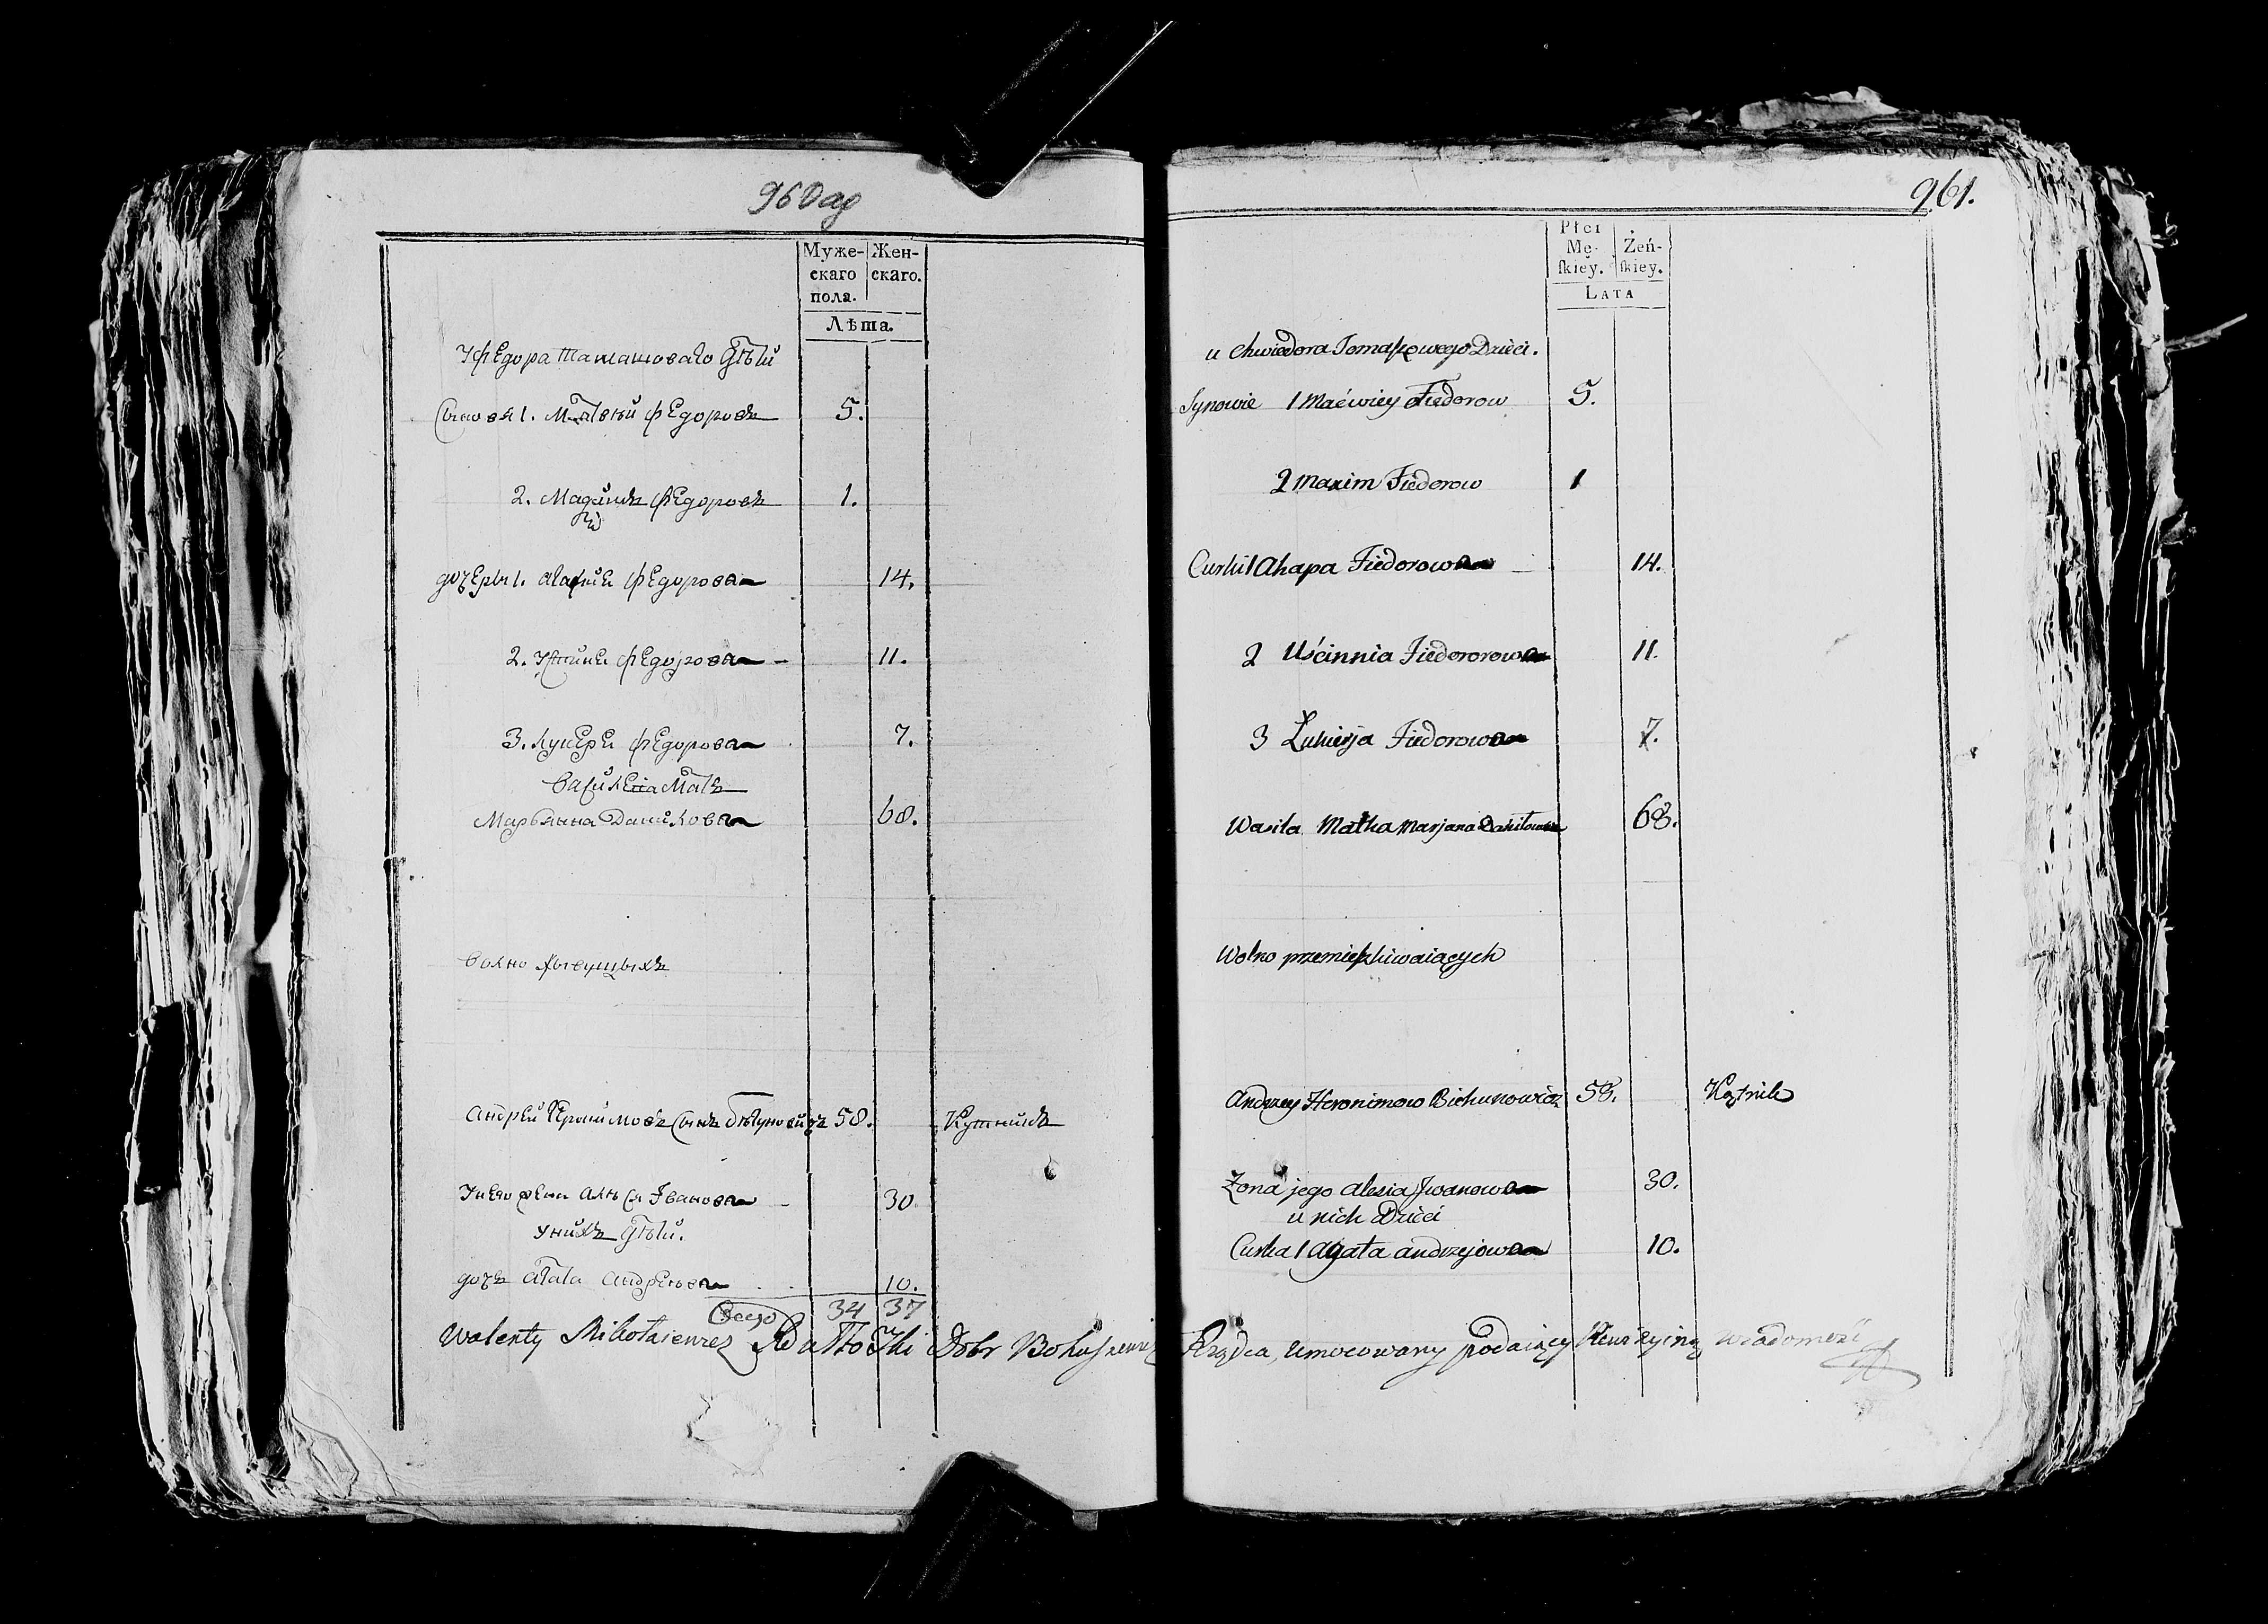 960 об
Муже-
скаго
пола.
Жен-
скаго.
Лѣта.
У Федора Тамашоваго дѣти
Сыновя 1. Матвѣй Федоровъ 5.
2. Мадимъ Федоровъ 1.
дочеры 1. Агафия Федорова 14.
2. Устиня Федорова 11.
3. Лукеря Федорова 7.
Василева Мать
Марьянна Данилова 68.
Волно живущыхъ
Андрей Геронимовъ Сынъ Бѣгуновичъ 58. Кутникъ
У него жена Алѣся Иванова 30.
У нихъ дѣти.
дочъ Агата Андреева 10.
Всего 34 37
961.
Płci
Mę-
ſkiey.
Żeń-
ſkiey.
LATA
u Chwiedora Tomaszowego Dzieci.
Synowie 1 Maćwiey Fiedorow 5.
2 Maxim Fiedorow 1
Curki 1 Ahapa Fiedorowa 14.
2 Uścinnia Fiedororowa 11.
3 Łukierja Fiedorowa 7.
Wasila Matka Marjana Daniłowa 68.
Wolno przemieszkiwaiących
Andrzey Heronimow Biehunowicz 58. Kątnik
Żona jego Alesia Jwanowa 30.
u nich Dzieci
Curka 1 Agata Andrzejowa 10.
Walenty Mikołaiewicz Dobr Rządca, Umocowany podaiący Rewizyiną wiadomość